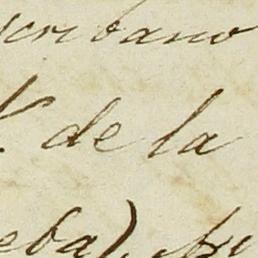 scribano
de la
eba),